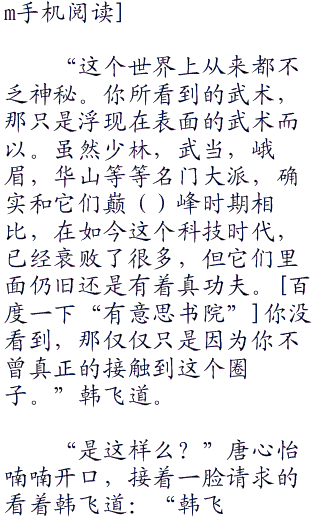 m手机阅读]
“这个世界上从来都不
乏神秘。你所看到的武术，
那只是浮现在表面的武术而
以。虽然少林，武当，峨
眉，华山等等名门大派，确
实和它们巅（）峰时期相
比，在如今这个科技时代，
已经衰败了很多，但它们里
面仍旧还是有着真功夫。[百
度一下“有意思书院”]你没
看到，那仅仅只是因为你不
曾真正的接触到这个圈
子。”韩飞道。
“是这样么？”唐心怡
喃喃开口，接着一脸请求的
看着韩飞道：“韩飞